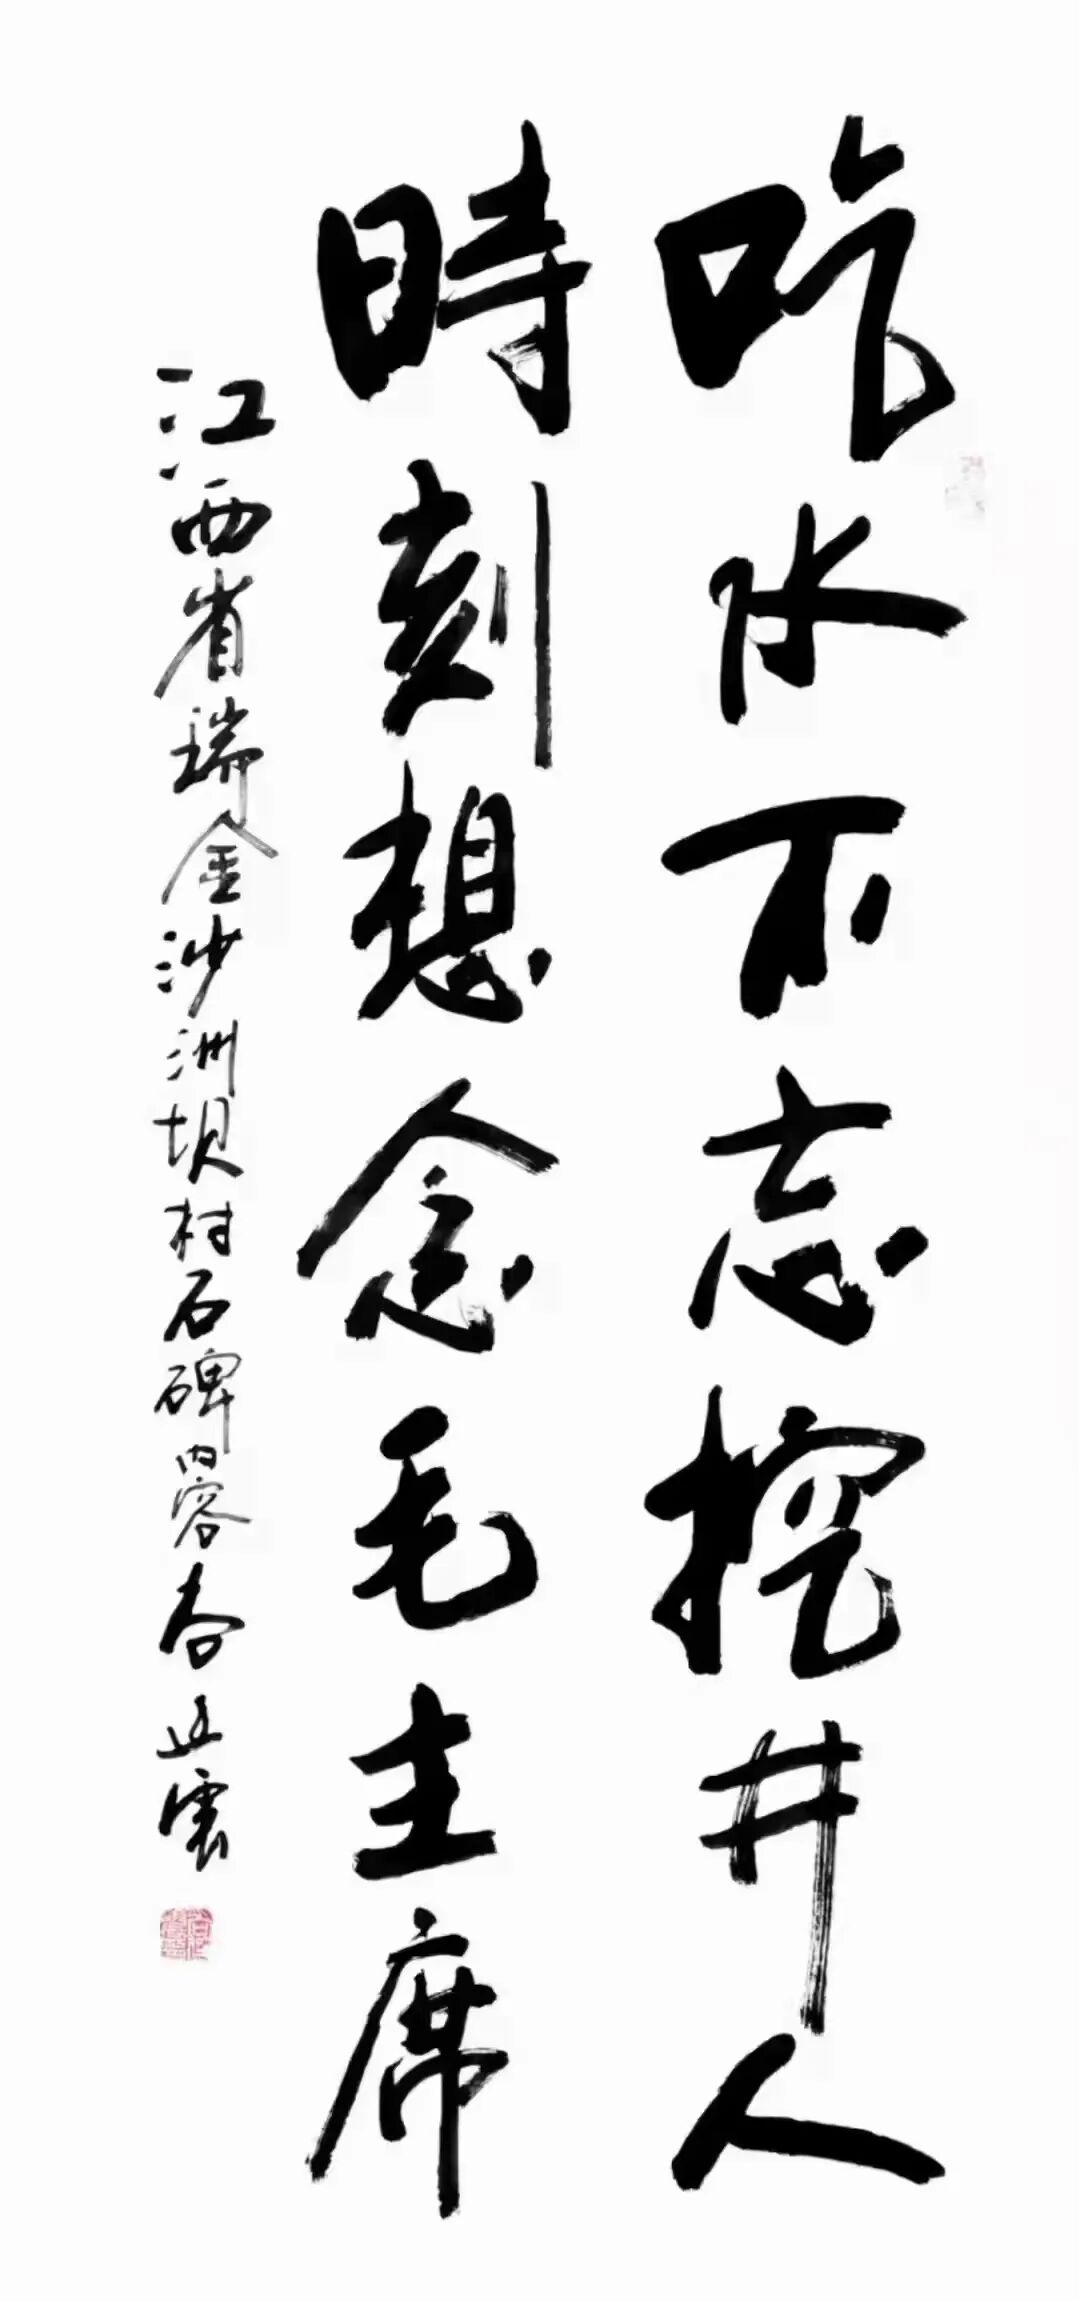 吃水不忘挖井人
時刻想念毛主席
江西省瑞金沙洲坝村石碑内容